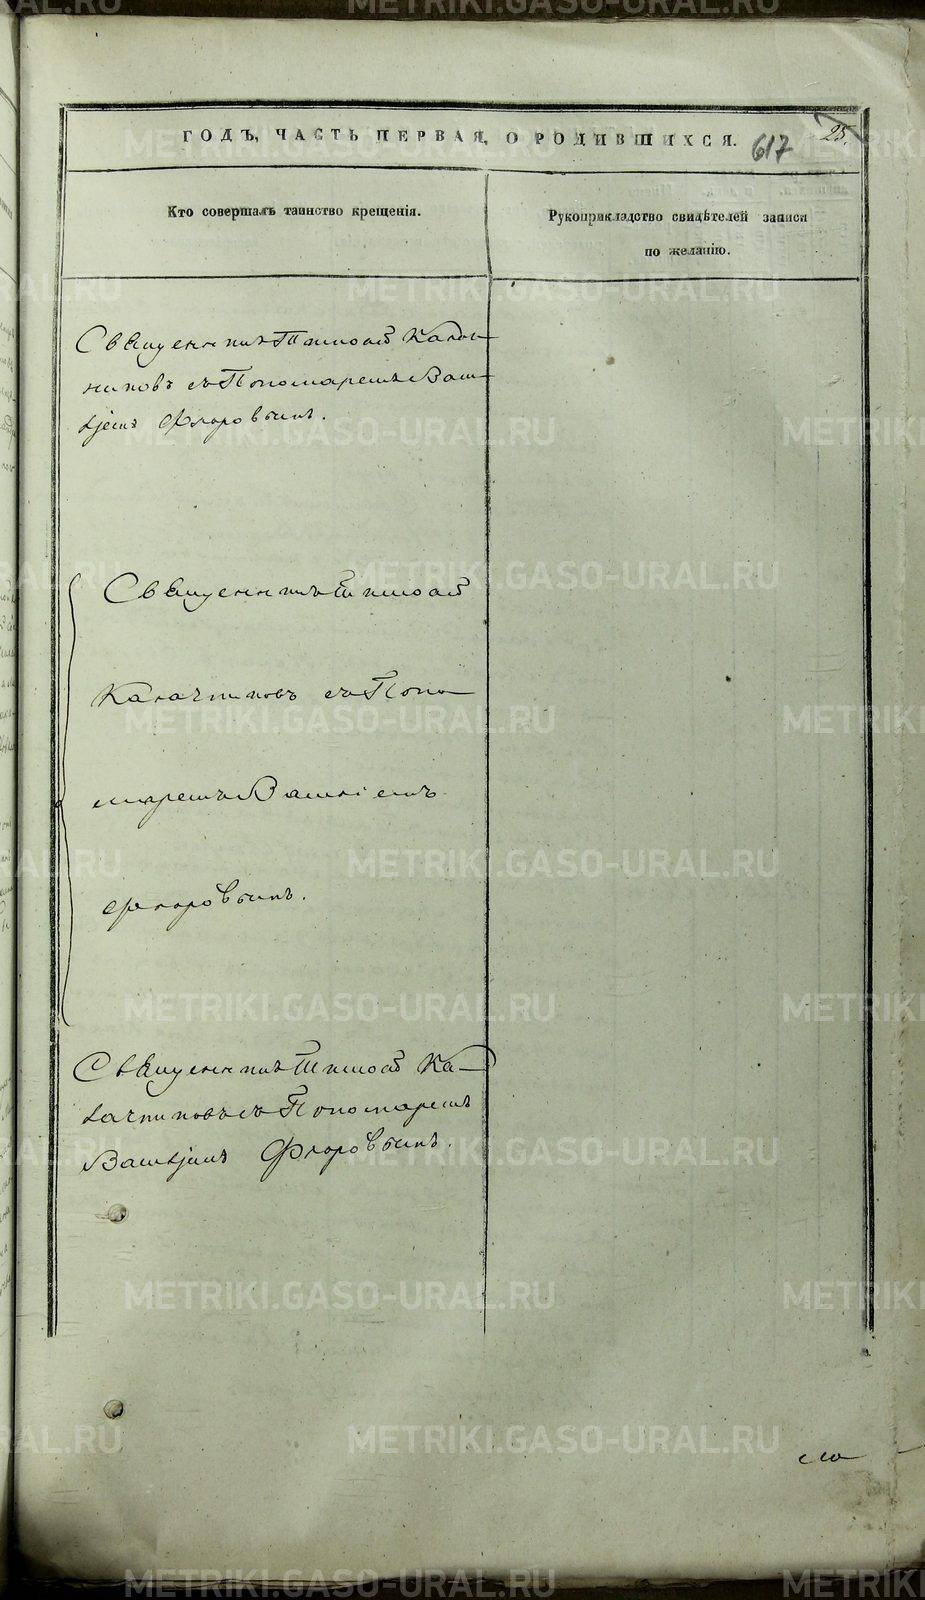 ГОДЪ, ЧАСТЬ ПЕРВАЯ, О РОДИВШИХСЯ.
617
25.
Кто совершалъ таинство крещенія.
Рукоприкладство свидѣтелей записи
по желанію.
Священникъ Тимоѳей Калач-
никовъ съ Пономаремъ Васи-
ліемъ Флоровымъ.
Священникъ Тимоѳей
Калачниковъ съ Поно-
маремъ Василіемъ
Флоровымъ.
Священникъ Тимоѳей Ка-
лачниковъ съ Пономаремъ
Василіемъ Флоровымъ.
METRIKI.GASO-URAL.RU